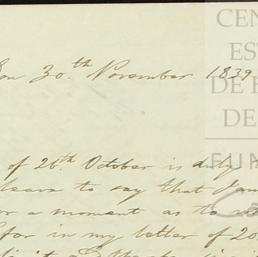 on 30.th November 1839
CEN
ES
DE
DE
FUN
of 26th October is duly
leave to say that I am
or a moment as to
for in my letter of 20